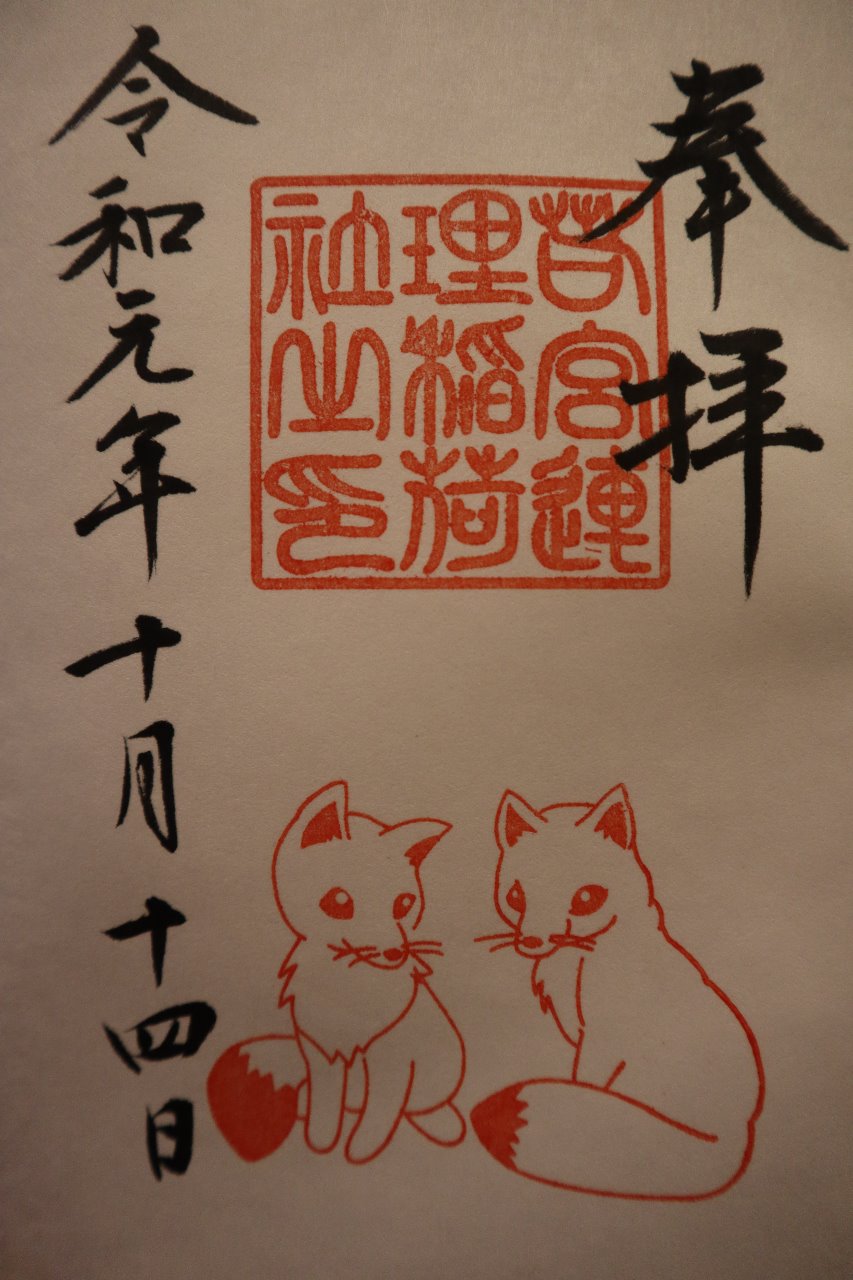 奉拝
若宮連
理稲荷
社之印
令和元年十月十四日